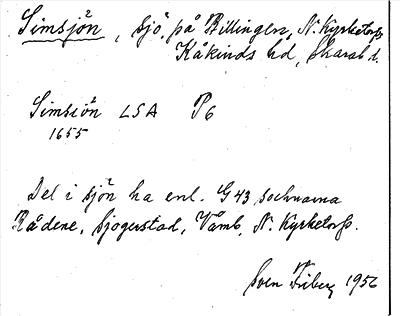 Simsjön, sjö, på Billingen, N. Kyrketorps
Kåkinds hd, Skarab. l.
Simsiön LSA P6
1655
Del i sjön ha enl. G43 socknarna
Rådene, Sjogerstad, Våmb, N. Kyrketorp.
Sven Friberg 1956